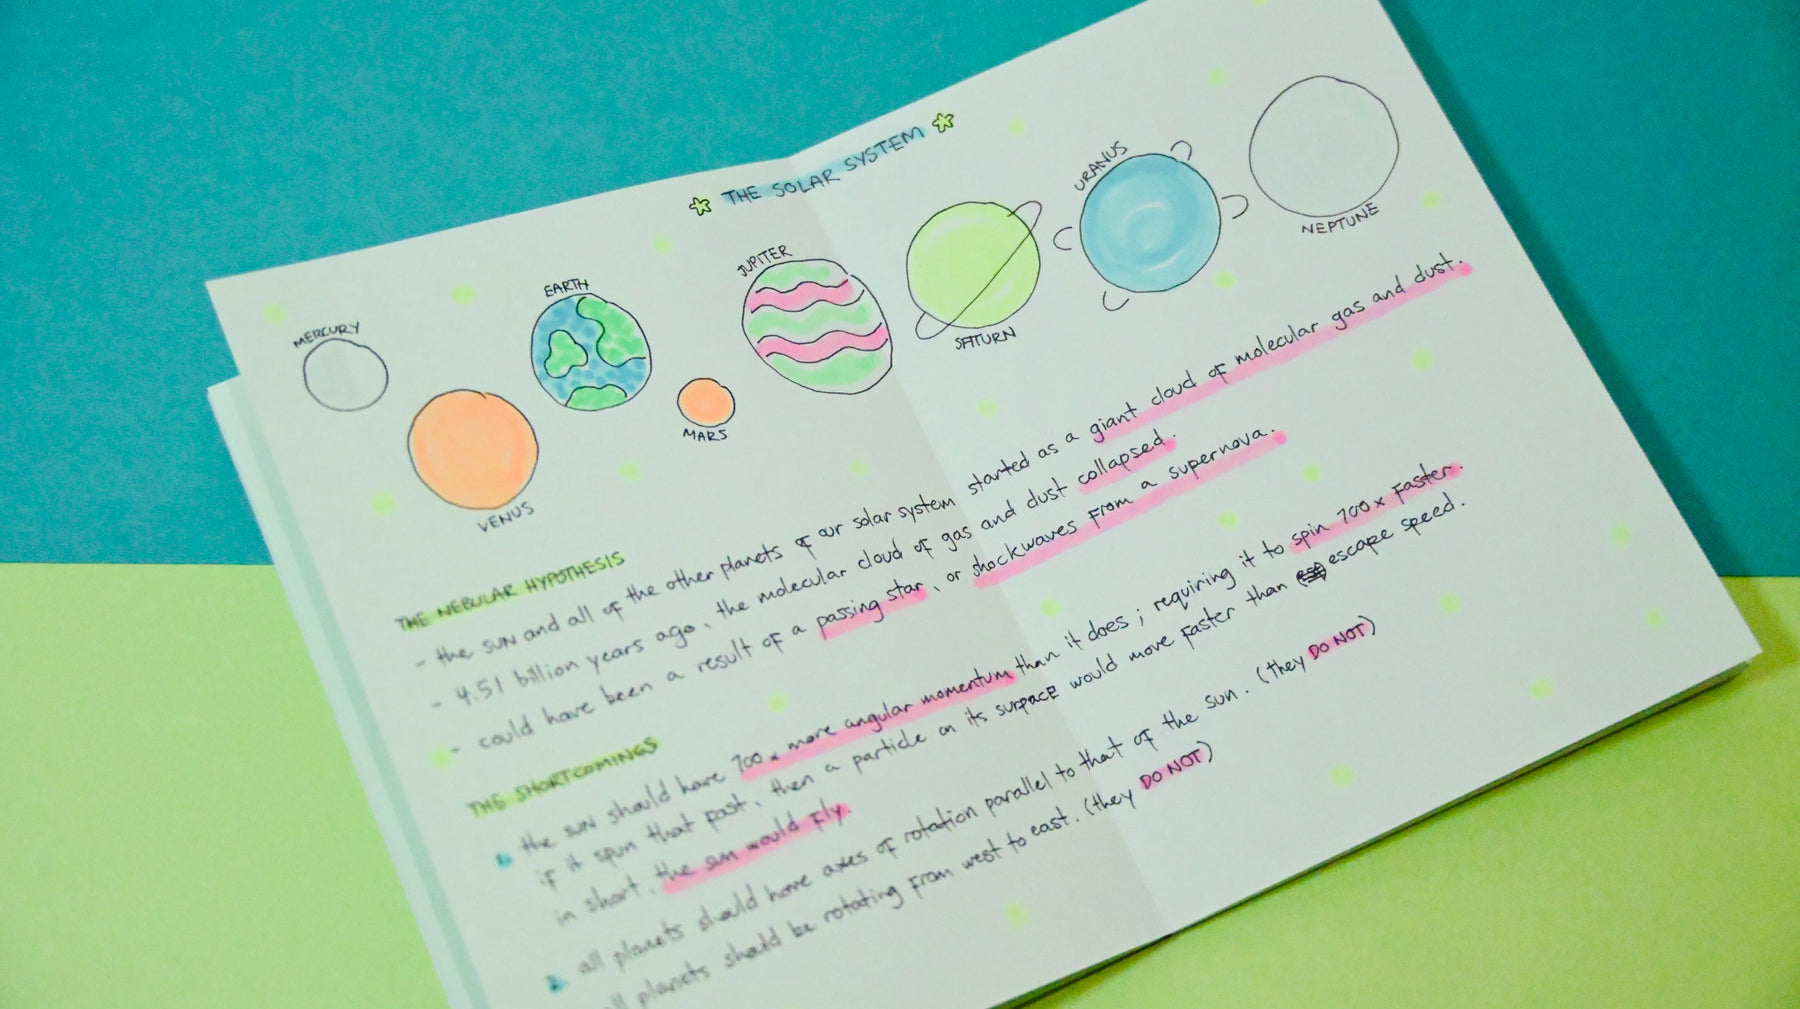 THE SOLAR SYSTEM
MERCURY
VENUS
EARTH
MARS
JUPITER
SATURN
URANUS
NEPTUNE
THE NEBULAR HYPOTHESIS
- the sun and all of the other planets of our solar system started as a giant cloud of molecular gas and dust.
- 4.51 billion years ago, the molecular cloud of gas and dust collapsed.
- could have been a result of a passing star, or shockwaves from a supernova.
THE SHORTCOMINGS
1. the sun should have 700x more angular momentum than it does; requiring it to spin 700x faster.
if it spun that fast, then a particle on its surface would move faster than escape speed.
in short, the sun would fly.
2. all planets should have axes of rotation parallel to that of the sun. (they DO NOT)
all planets should be rotating from west to east. (they DO NOT)